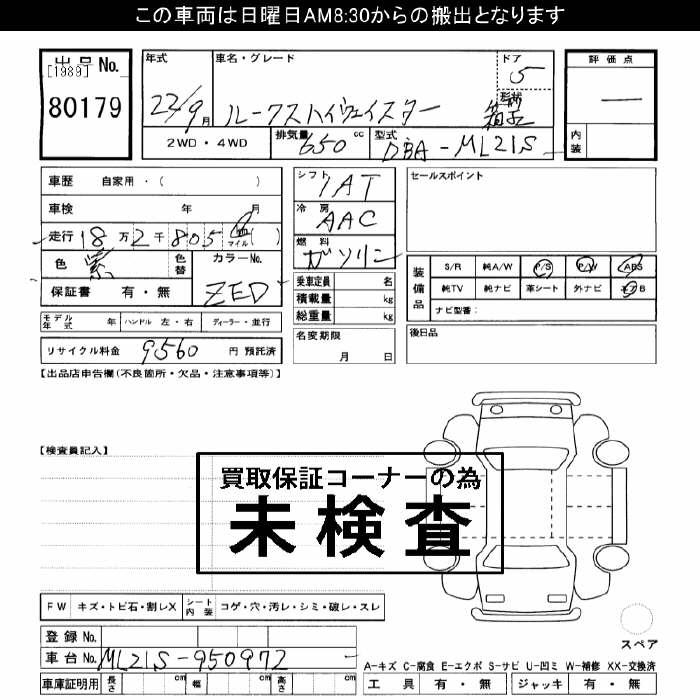 この車両は日曜日AM8:30からの搬出となります
出品 No.
[1989]
80179
年式
23/9月
車名・グレード
ルークスハイウェイスター
ドア
5
形状
箱型
評価点
―
内装
2WD・4WD
排気量 650 cc
型式 DBA-ML21S
車歴 自家用・( )
車検 年 月
走行 18万2千805 km マイル ( )
色 紫 色替
カラーNo. ZED
保証書 有・無
モデル年式 年 ハンドル 左・右 ディーラー・並行
リサイクル料金 9560 円 預託済
シフト IAT
冷房 AAC
燃料 ガソリン
乗車定員 名
積載量 kg
総重量 kg
名変期限
月 日
セールスポイント
装備品
S/R 純A/W P/S P/W ABS
純TV 純ナビ 革シート 外ナビ
ナビ型番:
後日品
【出品店申告欄(不良箇所・欠品・注意事項等)】
【検査員記入】
買取保証コーナーの為
未検査
FW キズ・トビ石・割レX シート内装 コゲ・穴・汚レ・シミ・破レ・スレ
登録 No.
車台 No. ML21S-950972
車庫証明用 長さ cm 幅 cm 高さ cm
スペア
A-キズ C-腐食 E-エクボ S-サビ U-凹ミ W-補修 XX-交換済
工具 有・無 ジャッキ 有・無